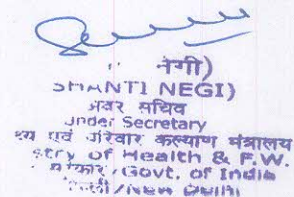 नेगी)
SHANTI NEGI)
अवर सचिव
Under Secretary
एवं परिवार कल्याण मंत्रालय
stry of Health & F.W.
सरकार/Govt. of India
/New Delhi